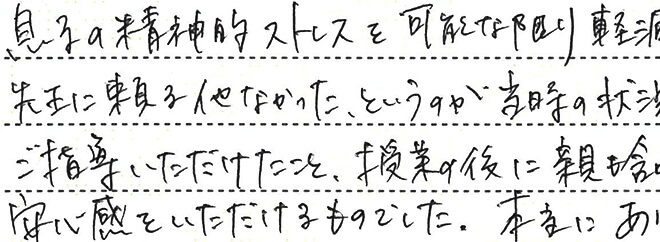 息子の精神的ストレスを可能な限り軽減
先生に頼る他なかった、というのが当時の状況
ご指導いただけたこと、授業の後に親も含め
安心感をいただけるものでした。本当にあり